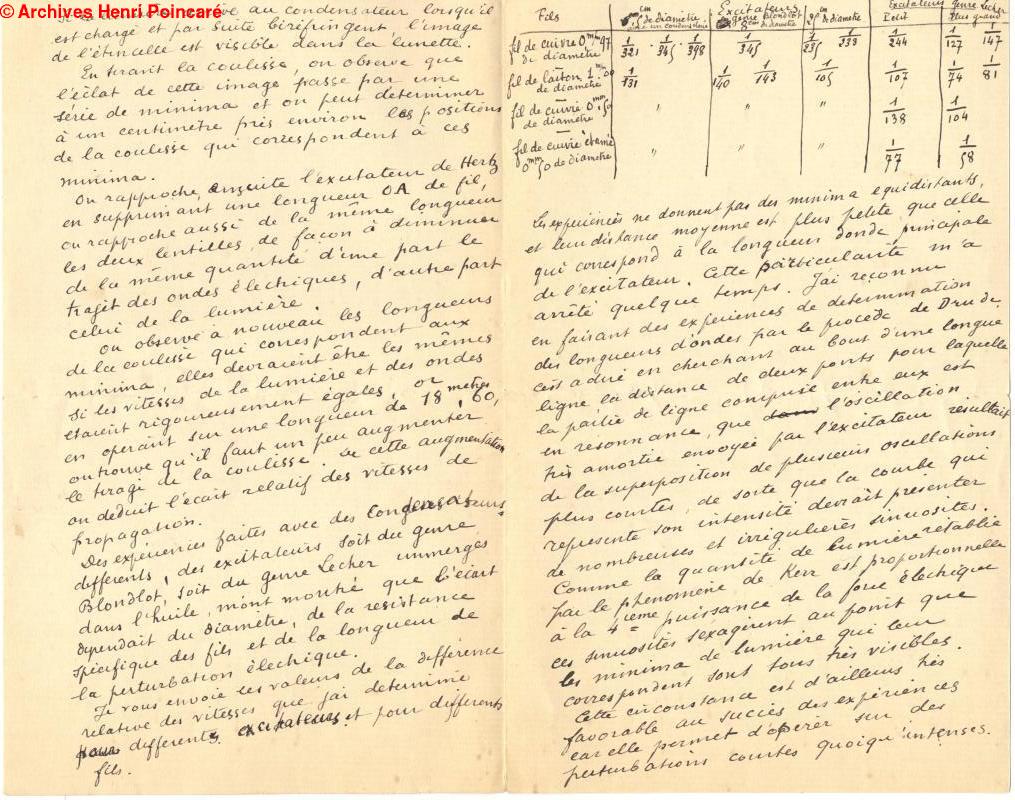 © Archives Henri Poincaré
au condensateur lorsqu'il
est chargé et par suite biréfringent l'image
de l'étincelle est visible dans la lunette.
En tirant la coulisse, on observe que
l'éclat de cette image passe par une
série de minima et on peut determiner
à un centimètre près environ les positions
de la coulisse qui correspondent à ces
minima.
On rapproche ensuite l'excitateur de Hertz
en supprimant une longueur OA de fil,
on rapproche aussi de la même longueur
les deux lentilles, de façon à diminuer
de la même quantité d'une part le
trajet des ondes électriques, d'autre part
celui de la lumière.
On observe à nouveau les longueurs
de la coulisse qui correspondent aux
minima, elles devraient être les mêmes
si les vitesses de la lumière et des ondes
étaient rigoureusement égales, or
en opérant sur une longueur de 18 mètres, 60,
on trouve qu'il faut un peu augmenter
le tirage de la coulisse. De cette augmentation
on déduit l'écart relatif des vitesses de
propagation.
Des expériences faites avec des condensateurs
différents, des excitateurs soit du genre
Blondlot, soit du genre Lecher immergés
dans l'huile, m'ont montré que l'écart
dépendait du diamètre, de la resistance
spécifique des fils et de la longueur de
la perturbation électrique.
Je vous envoie les valeurs de la différence
relative des vitesses que j'ai determiné
pour differents excitateurs et pour differents
fils.
Fils
Excitateurs
en genre Blondlot
Excitateurs genre Lecher
de diamètre
de diamètre
de diamètre
Petit
Plus grand
fil de cuivre 0mm97
de diamètre
1/321 · 1/345 · 1/398
1/345
1/235
1/233
1/244
1/127
1/147
fil de laiton 1mm00
de diamètre
1/131
1/140
1/143
1/105
1/107
1/74
1/81
fil de cuivre 0mm,50
de diamètre
"
"
"
1/138
1/104
fil de cuivre étamé
0mm50 de diamètre
"
"
"
1/77
1/58
Les expériences ne donnent pas des minima équidistants,
et leur distance moyenne est plus petite que celle
qui correspond à la longueur d'onde principale
de l'excitateur. Cette particularité m'a
arrêté quelque temps. J'ai reconnu
en faisant des expériences de determination
des longueurs d'ondes par le procédé de Drude,
c'est à dire en cherchant au bout d'une longue
ligne, la distance de deux ponts pour laquelle
la partie de ligne comprise entre eux est
en resonnance, que l'oscillation
très amortie envoyée par l'excitateur résultait
de la superposition de plusieurs oscillations
plus courtes, de sorte que la courbe qui
représente son intensité devrait présenter
de nombreuses et irrégulières sinuosités.
Comme la quantité de lumière rétablie
par le phénomène de Kerr est proportionnelle
à la 4ième puissance de la force électrique
ces sinuosités s'exagèrent au point que
les minima de lumière qui leur
correspondent sont tous très visibles.
Cette circonstance est d'ailleurs très
favorable au succès des expériences
car elle permet d'opérer sur des
perturbations courtes quoiqu'intenses.